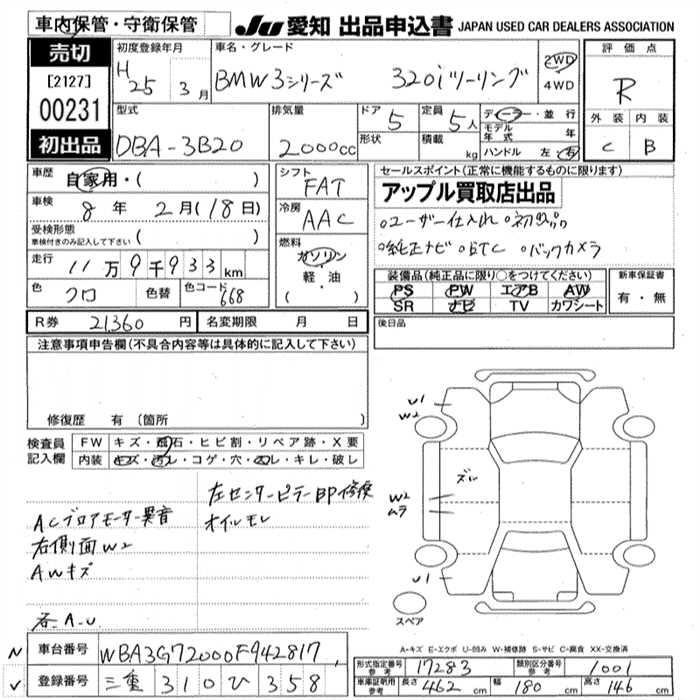 車内保管・守衛保管
JU 愛知 出品申込書 JAPAN USED CAR DEALERS ASSOCIATION
売切
[2127]
00231
初出品
初度登録年月
H 25 3月
車名・グレード
BMW3シリーズ 320iツーリング
2WD
4WD
評価点
R
外装 内装
C B
型式
DBA-3B20
排気量
2000cc
ドア 5
形状
定員 5人
積載 kg
ディーラー・並行
モデル年式 年
ハンドル 左・右
車歴 自家用・( )
車検 8年 2月(18日)
受検形態
車検付きのみ記入して下さい ( )
走行 11万9千933km
色 クロ 色替 色コード 668
シフト
FAT
冷房
AAC
燃料
ガソリン
軽・油
( )
セールスポイント(正常に機能するものに限ります)
アップル買取店出品
○ユーザー仕入れ ○初出品
○純正ナビ ○ETC ○バックカメラ
装備品(純正品に限り○をつけてください)
PS PW エアB AW
SR ナビ TV カワシート
新車保証書
有・無
R券 21,360円 名変期限 月 日
後日品
注意事項申告欄(不具合内容等は具体的に記入して下さい)
修復歴 有 (箇所 )
検査員記入欄
FW キズ・飛石・ヒビ割・リペア跡・X要
内装 キズ・汚レ・コゲ・穴・スレ・キレ・破レ
左センターピラーBP修復
ACブロアモーター異音 オイルモレ
右側面W2
AWキズ
A.U
W1
W2
ズレ
W2
ムラ
U1
スペア
A-キズ E-エクボ U-凹み W-補修跡 S-サビ C-腐食 XX-交換済
N 車台番号 WBA3G72000F942817
✓ 登録番号 三重 310 ひ 358
形式指定番号 参考 17283 類別区分番号 参考 1001
車庫証明用 参考 長さ 462cm 幅 180cm 高さ 146cm